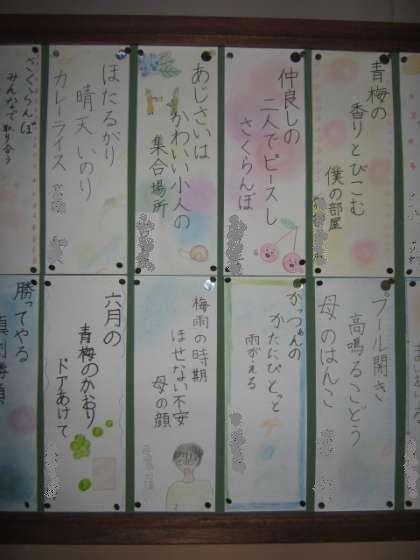 青梅の
香りとびこむ
僕の部屋
仲良しの
二人でピースし
さくらんぼ
あじさいは
かわいい小人の
集合場所
ほたるがり
晴天いのり
カレーライス
さくらんぼ
みんなで取り合う
プール開き
高鳴るこどう
母のはんこ
かたにぴとっと
雨がえる
梅雨の時期
ほせない不安
母の顔
六月の
青梅のかおり
ドアあけて
勝ってやる
真剣勝負